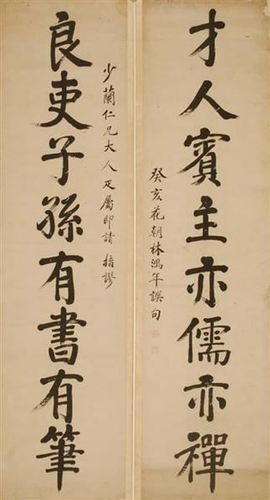 才人賓主亦儒亦禪
癸亥花朝林鴻年譔句
少蘭仁兄大人疋屬即請指謬
良吏子孫有書有筆